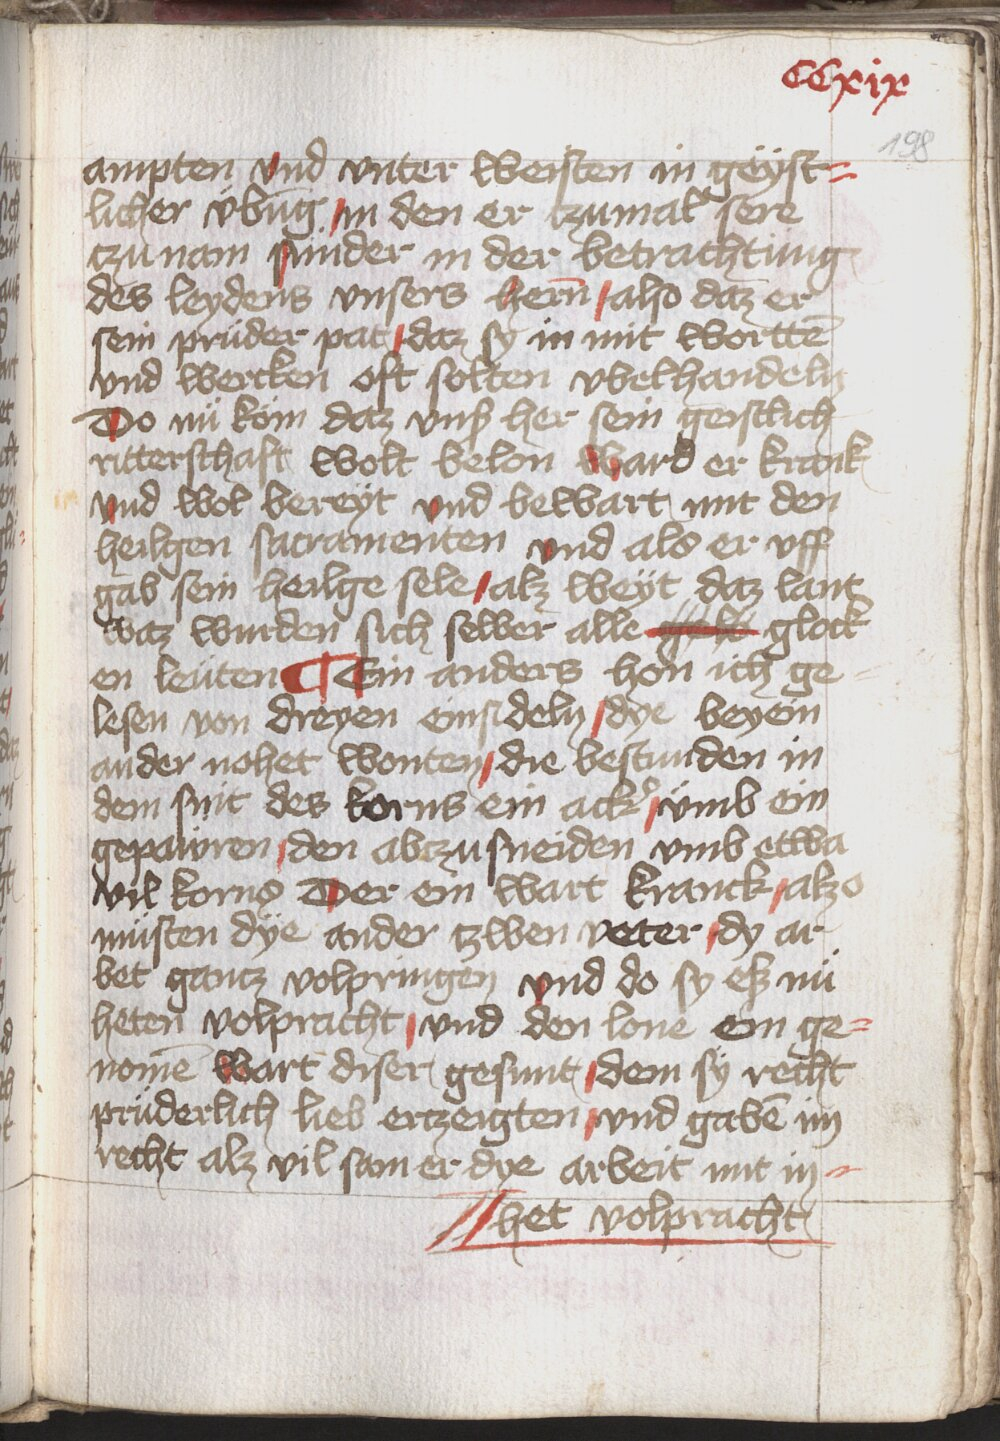 CCxix
198
ampten vnd vnter weisten in geÿst=
licher vbũg / in den er tzumal sere
tzu nam sunder in der betrachtung
des leydens vnsers herñ / also daz er
sein prüder pat / daz sy in mit wortte͂
vnd wercken oft solten vbelhandeln
Do nü köm daz vnß her sein geistlich
ritterschaft wolt belon ward er krank
vnd wol bereÿt vnd bewart mit den
heilgen sacramenten vnd als er vff
gab sein heilge sele / alz weÿt daz lant
waz wurden sich selber alle glock
en leüten ¶ Ein anders hon ich ge
lesen von dreyen einsideln / dye beyein
ander nohet wonten / die bestunden in
dem snit des korns ein ackr̉ / vmb ein
gepawren / den abczusneiden vmb ettwa
vil korns Der ein wart kranck / alzo
müsten dÿe ander tzwen veter / dy ar
bet gantz volpringen vnd do sy eß nü
heten volpracht / vnd den lone ein ge=
nome͂ wart diser gesunt / dem sy recht
prüderlich lieb ertzeigten / vnd gabe͂ im
recht alz vil sam er dye arbeit mit in =
// het volpracht